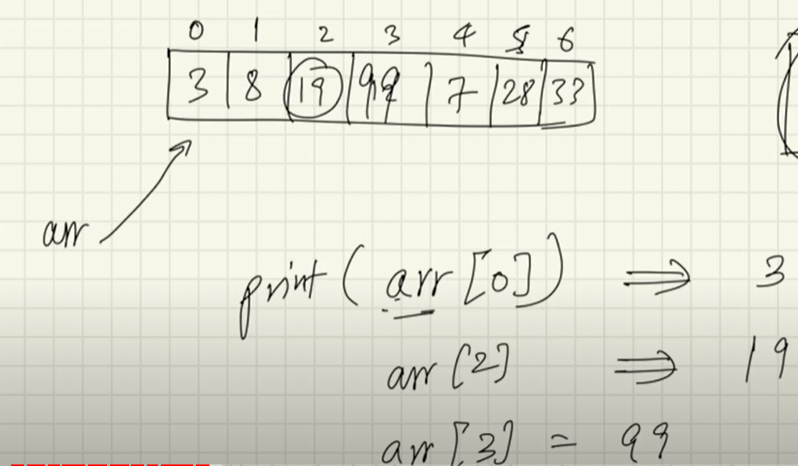 0 1 2 3 4 5 6
3 8 19 99 7 28 33
arr
print (arr [0]) ⇒ 3
arr [2] ⇒ 19
arr [3] = 99